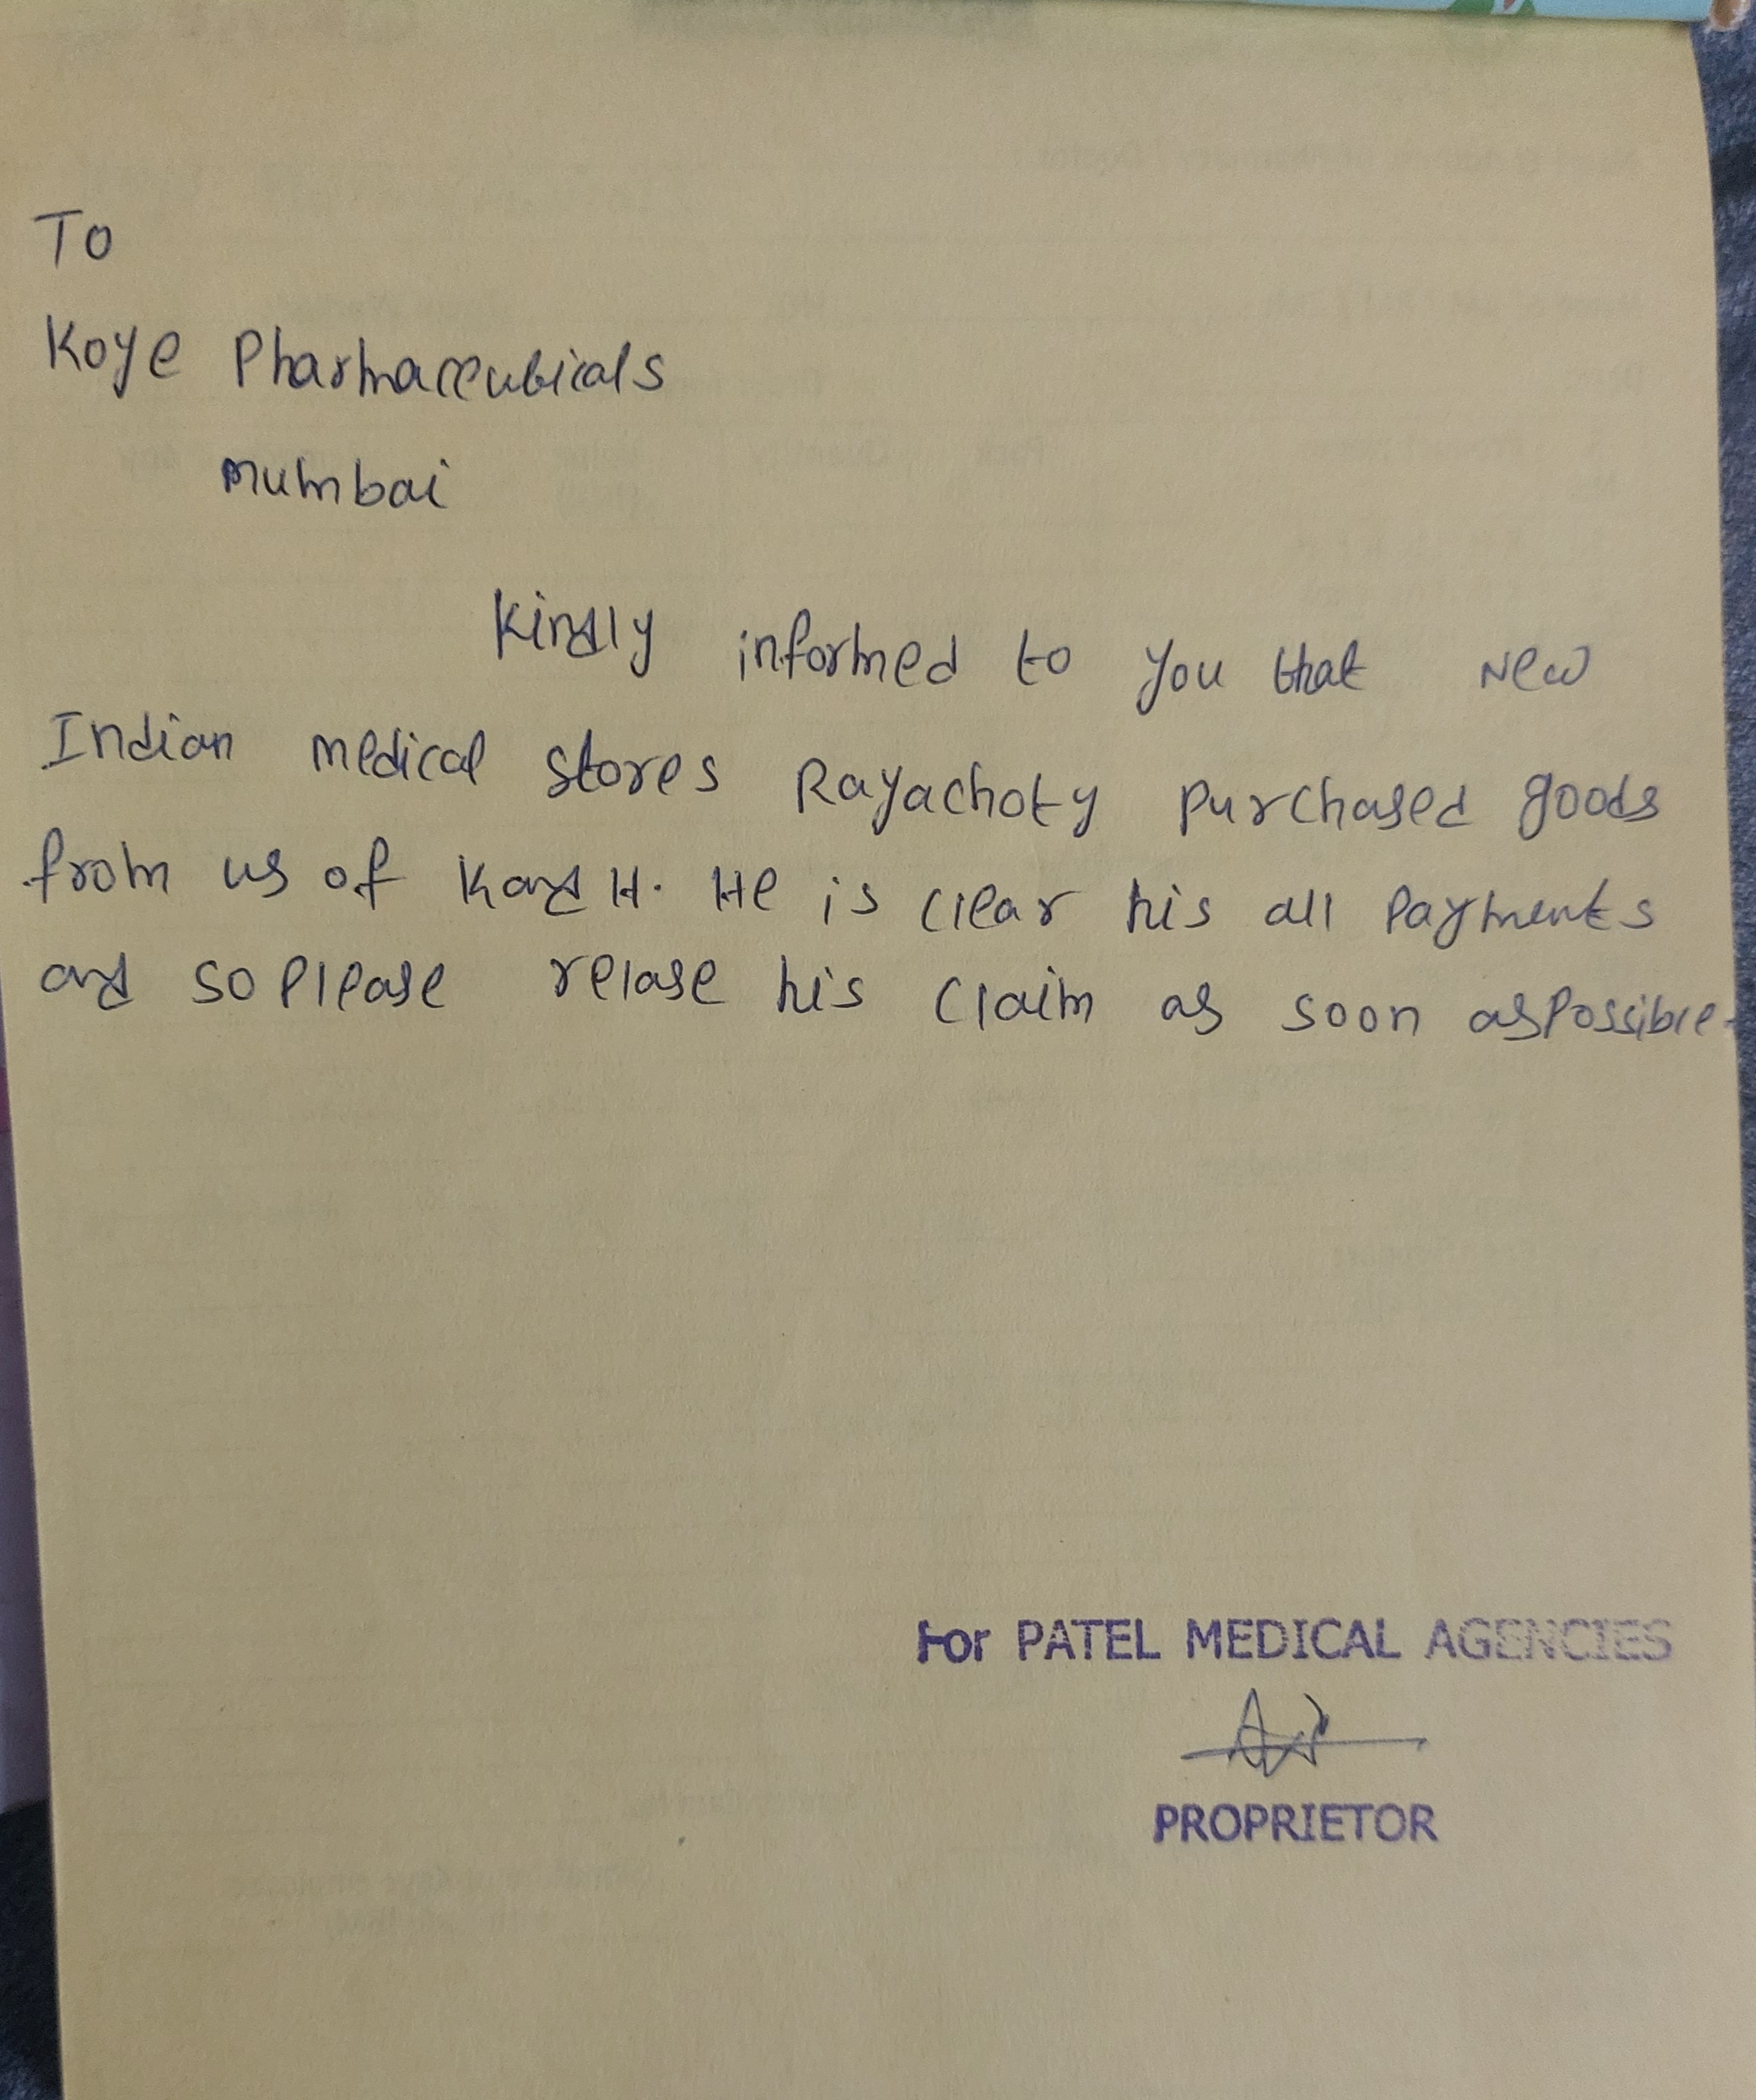 To
Koye Pharmaceuticals
Mumbai
Kindly informed to you that New
Indian medical stores Rayachoty purchased goods
from us of K and H. He is clear his all Payments
and so Please relase his claim as soon as Possible.
For PATEL MEDICAL AGENCIES
PROPRIETOR